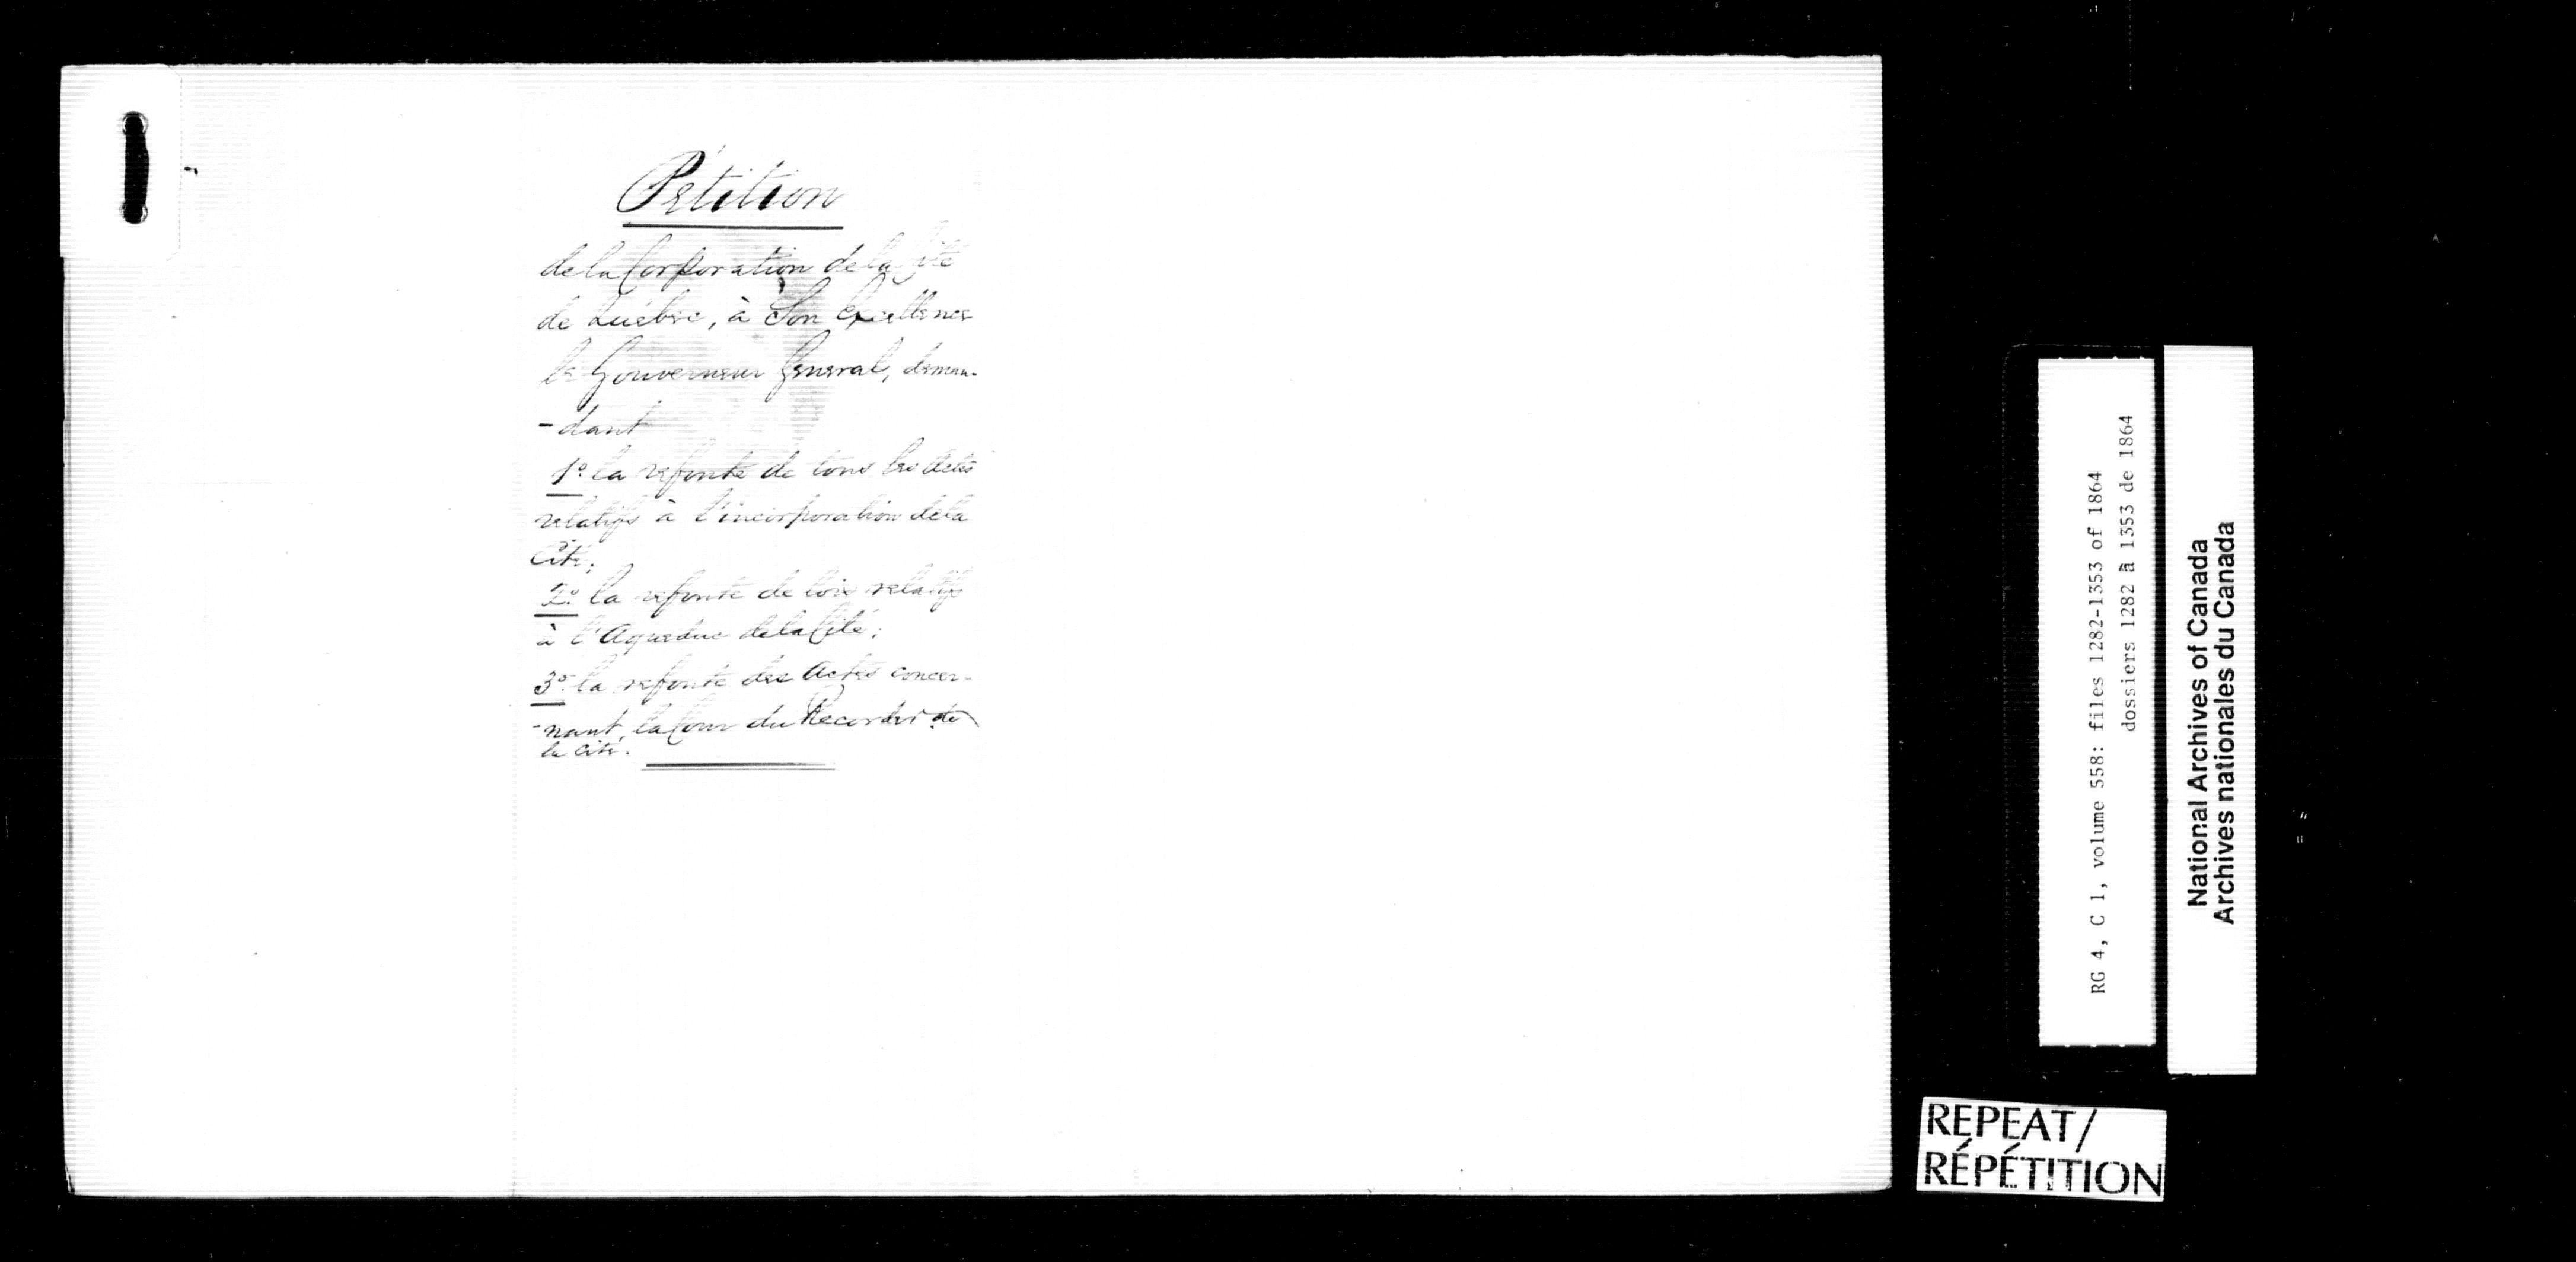 Pétition
de la Corporation de la Cité
de Québec, à Son Excellence
le Gouverneur General, deman-
-dant
1º la refonte de tous les Actes
relatifs à l'incorporation de la
Cité;
2º la refonte de lois relatifs
à l'Aqueduc de la Cité;
3º la refonte des Actes concer-
-nant, la Cour du Recorder de
la Cité.
RG 4, C 1, volume 558: files 1282-1353 of 1864
dossiers 1282 à 1353 de 1864
National Archives of Canada
Archives nationales du Canada
REPEAT/
RÉPÉTITION